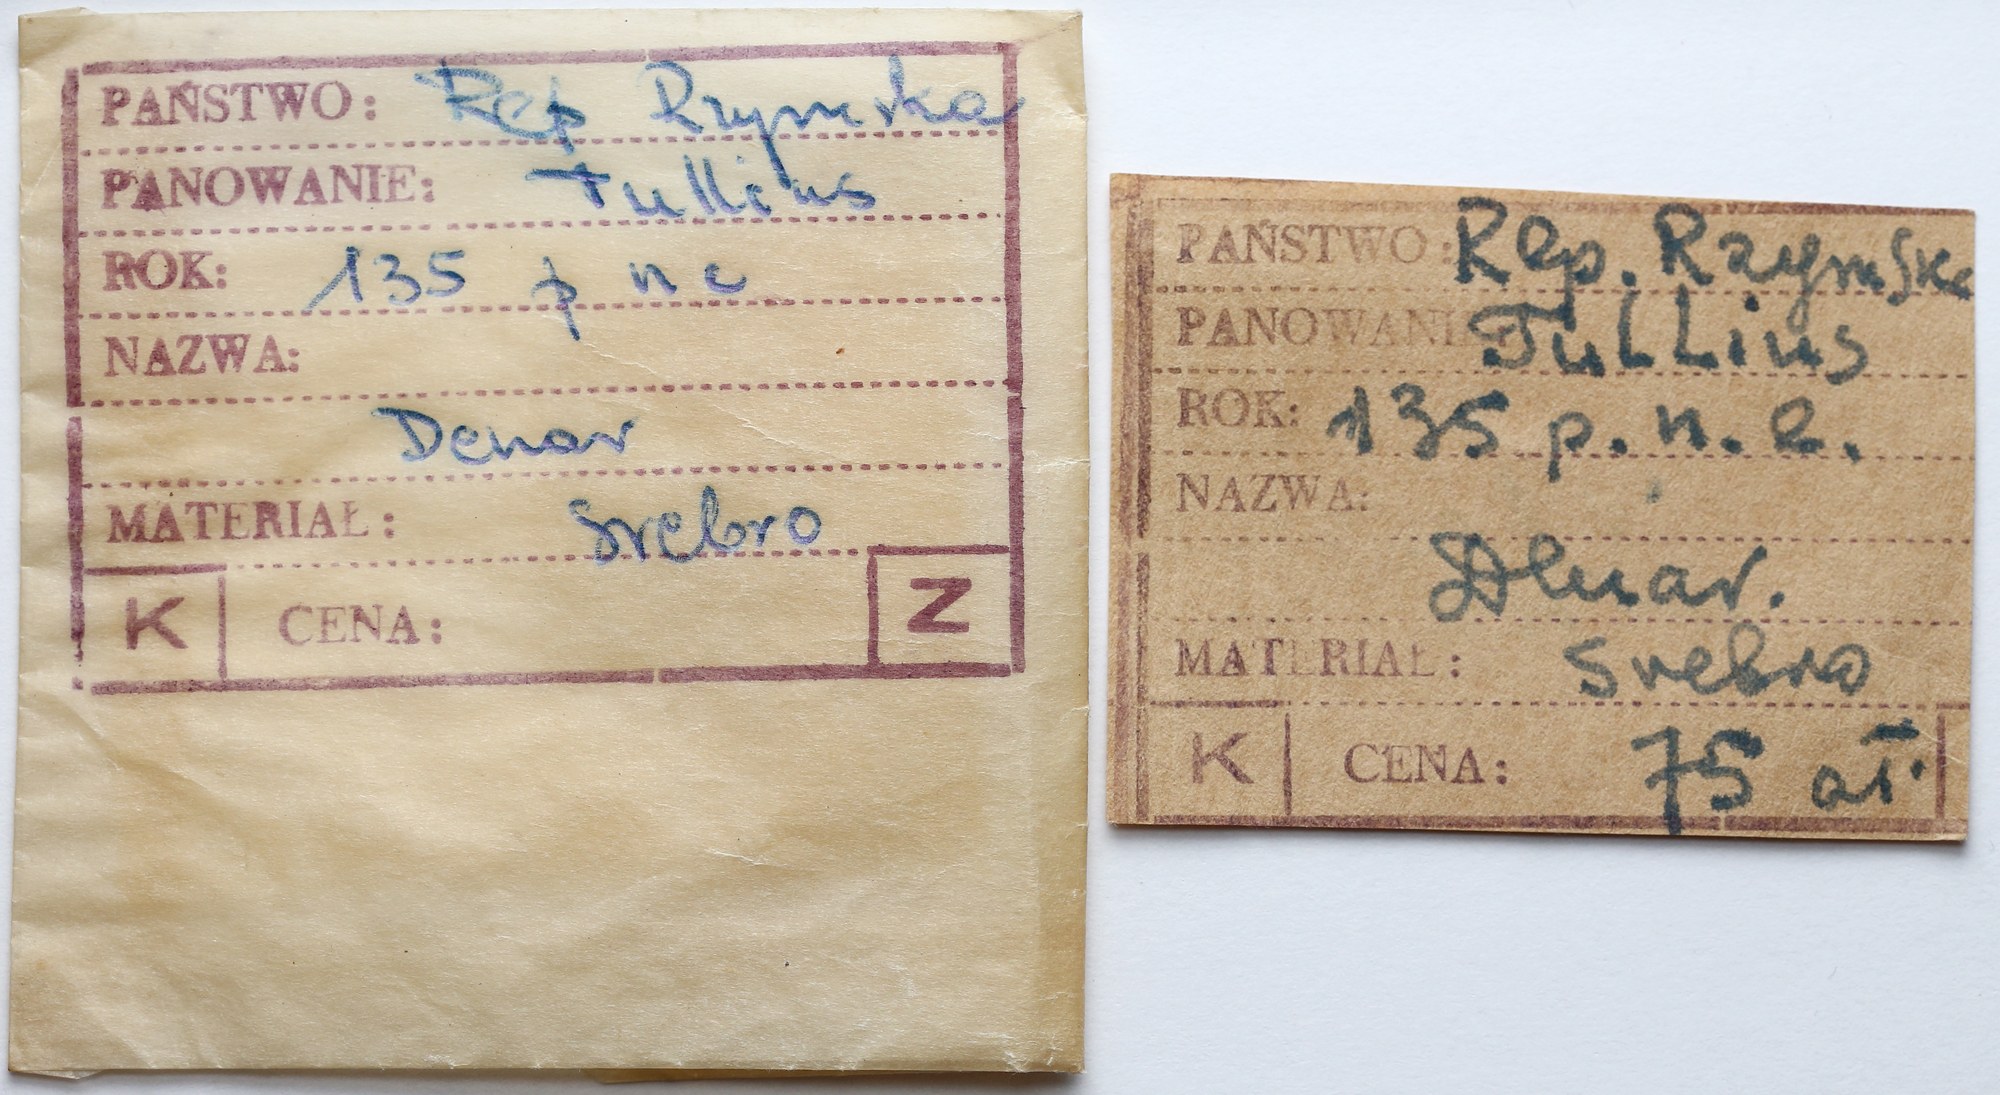 PAŃSTWO: Rep Rzymska
PANOWANIE: Tullius
ROK: 135 p n e
NAZWA:
Denar
MATERIAŁ: srebro
K CENA: Z
PAŃSTWO: Rep. Rzymska
PANOWANIE Tullius
ROK: 135 p. n. e.
NAZWA:
Denar.
MATERIAŁ: srebro
K CENA: 75